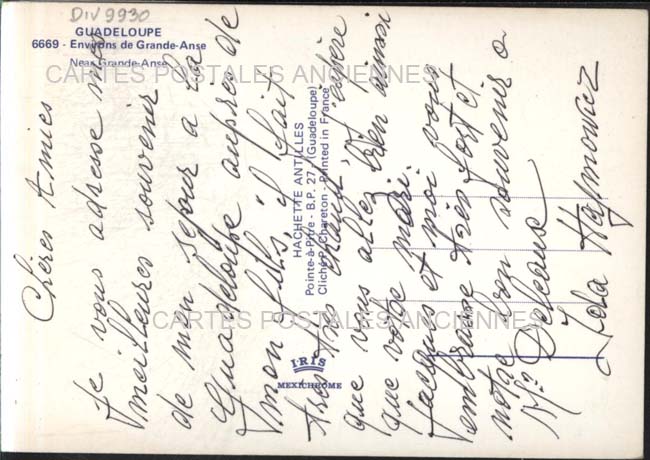 DIV 9930
GUADELOUPE
6669 - Environs de Grande-Anse
Near Grande-Anse
CARTES POSTALES ANCIENNES
HACHETTE ANTILLES
Pointe-à-Pitre - B.P. 27 - (Guadeloupe)
Cliché P. Chareton - Printed in France
CARTES POSTALES ANCIENNES
IRIS
MEXICHROME
Chères Amies
Je vous adresse mes
meilleures souvenir
de mon séjour a la
Guadeloupe auprès de
mon fils, il fait
très chaud. J'espère
que vous allez bien ainsi
que votre mari.
Jacques et moi vous
embrasse très fort et
notre bon souvenir a
Delcaux
Lola Haymowicz